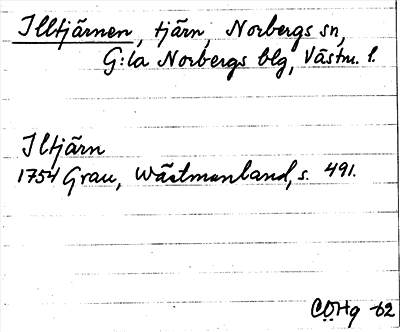 Illtjärnen, tjärn, Norbergs sn,
G:la Norbergs blg, Västm. l.
Iltjärn
1754 Grau, Wästmanland, s. 491.
CÖHg -62